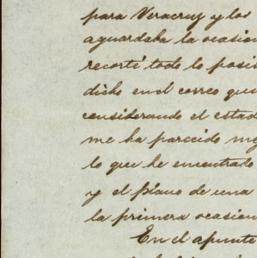 para Veracruz y los
aguardaba la ocasion
recorté todo lo posi
dicho en el correo que
considerando el estad
me ha parecido mej
lo que he encontrado
y el plano de una
la primera ocasion
En el apunte